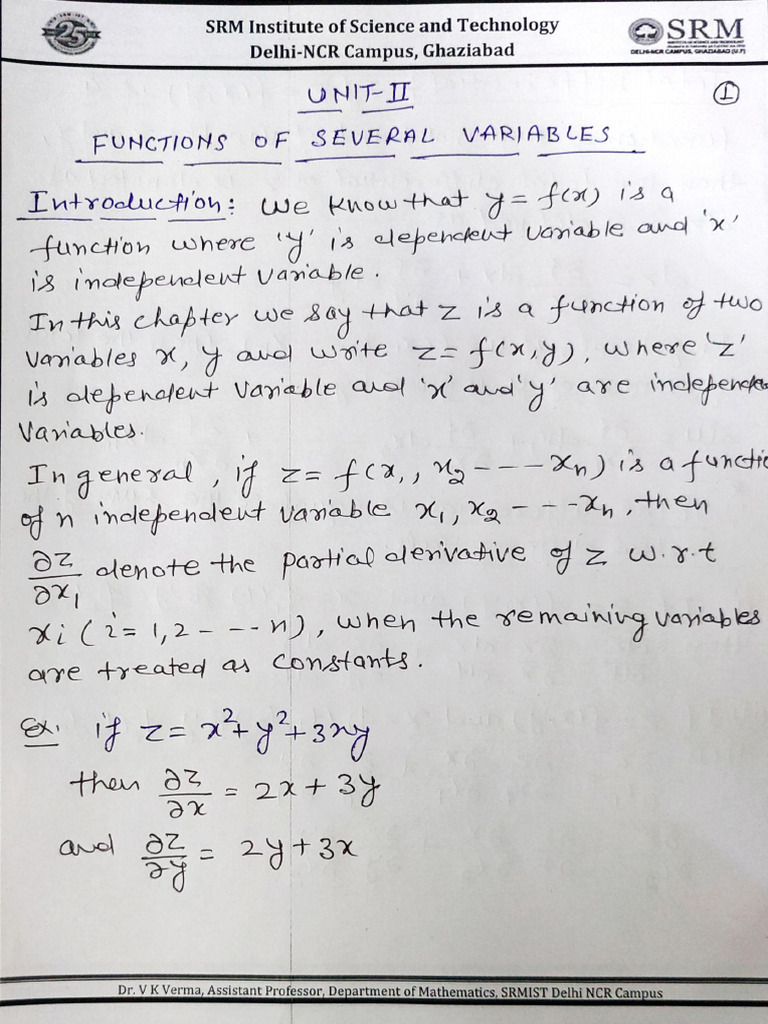 SRM Institute of Science and Technology
Delhi-NCR Campus, Ghaziabad
25
SRM
DELHI-NCR CAMPUS, GHAZIABAD (U.P)
UNIT-II
①
FUNCTIONS OF SEVERAL VARIABLES
Introduction: We know that y = f(x) is a
function where 'y' is dependent variable and 'x'
is independent variable.
In this chapter we say that z is a function of two
variables x, y and write z = f(x,y), where 'z'
is dependent variable and 'x' and 'y' are independe
variables.
In general, if z = f(x₁, x₂ - - - - xₙ) is a functio
of n independent variable x₁, x₂ - - - xₙ, then
∂z/∂x₁ denote the partial derivative of z w.r.t
xi (i = 1,2 - - - n), when the remaining variables
are treated as constants.
Ex: if z = x² + y² + 3xy
then ∂z/∂x = 2x + 3y
and ∂z/∂y = 2y + 3x
Dr. V K Verma, Assistant Professor, Department of Mathematics, SRMIST Delhi NCR Campus